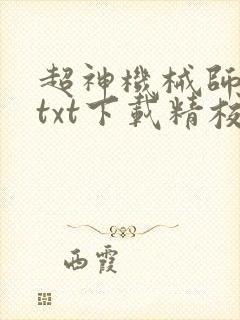 超神機械師
txt下載精校
西霞